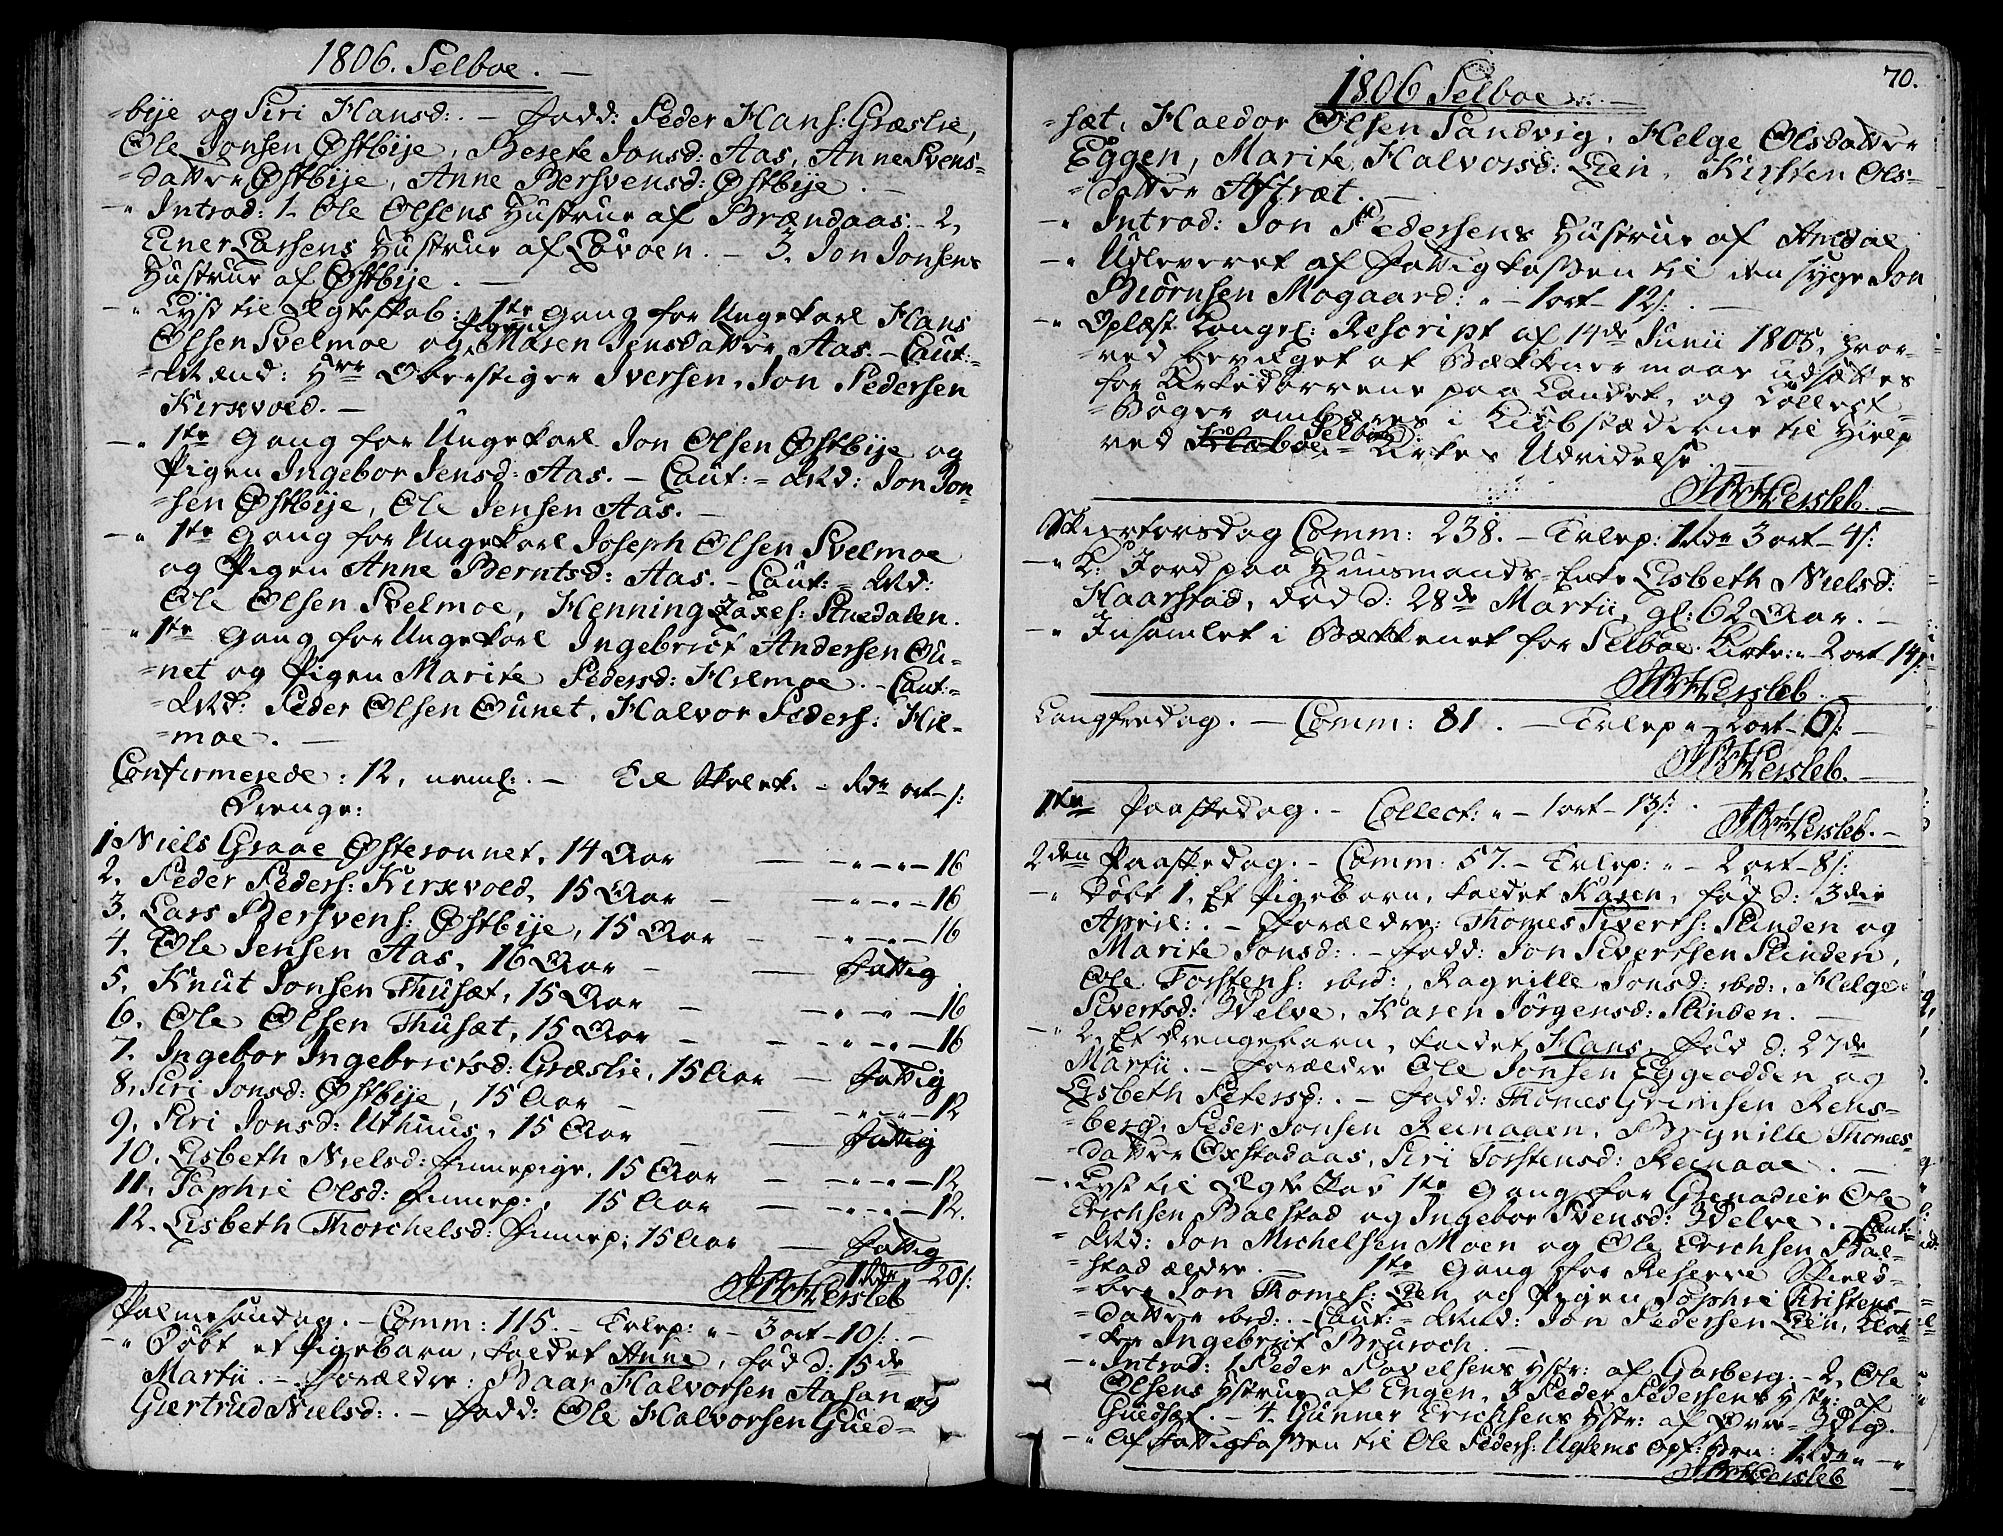 1806. Selboe. —
-bÿe og Siri Hansd:. — Fadd: Peder Hans: Græslie,
Ole Jonsen Østbÿe, Berete Jonsd: Aas, Anne Svens-
-datter Østbÿe, Anne Bersvensd: Østbÿe. —
—" Introd: 1. Ole Olsens Hustrue af Brændaas. – 2,
Einer Larsens Hustrue af Lövoen. — 3. Jon Jonsens
Hustrue af Østbÿe. —
—" Lyst til Ægteskab: 1te Gang for Ungekarl Hans
Olsen Svelmoe og Pigen Maren Jensdatter Aas. — Caut:-
-Mænd: Hrr Oberstiger Iversen, Jon Pedersen
Kirkvold. —
—" 1te Gang for Ungekarl Jon Olsen Østbÿe og
Pigen Ingebor Jensd: Aas. — Caut: = Md: Jon Jon-
-sen Østbÿe, Ole Jensen Aas. —
—" 1te Gang for Ungekarl Joseph Olsen Svelmoe
og Pigen Anne Berntsd: Aas. — Caut: = Md:
Ole Olsen Svelmoe, Henning Zaxes: Stuedalen.
—" 1te Gang for Ungekarl Ingebrict Andersen Ou-
-net og Pigen Marite Pedersd: Hilmoe. — Caut:-
-Md: Peder Olsen Ounet, Halvor Peders: Hil-
-moe. —
Confirmerede: 12, neml: — Til Skolek: – Rdr ort – s:
Drenge:
1 Niels Graae Østerounet, 14 Aar — — " — " — 16
2. Peder Peders: Kirkvold, 15 Aar — — " — " — 16
3. Lars Bersvens: Østbÿe, 15 Aar — — " — " — 16
4. Ole Jensen Aas, 16 Aar — — Fattig
5. Knut Jonsen Thusæt, 15 Aar — — " — " — 16
6. Ole Olsen Thusæt, 15 Aar — — " — " — 16
7. Ingebor Ingebrictsd: Græslie, 15 Aar — Fattig
8. Siri Jonsd: Østbÿe, 15 Aar — — " — " — 12
9. Siri Jonsd: Uthuus, 15 Aar — — Fattig
10. Lisbeth Nielsd: Finnepige, 15 Aar — — " — " — 12
11. Sophie Olsd: Finnep:, 15 Aar — — " — " — 12.
12. Lisbeth Thorchelsd: Finnep: 15 Aar — Fattig
1 Rdr — 20 s:
Hersleb
Palmesöndag. — Comm: 115. — Tvlep: " – 3 ort – 10 s:. —
—" Döbt et Pigebarn, kaldet Anne, föd d: 15de
Martii. — Forældre: Baar Halvorsen Aasan og
Giertrud Nielsd:. — Fadd: Ole Halvorsen Gued-
70.
1806 Selboe. —
-sæt, Haldor Olsen Sandvig, Helge Olsdatter
Eggen, Marite Halvorsd: Lien, Kirsten Ols-
-datter Aftræt. —
—" Introd: Jon Pedersens Hustrue af Amdal,
—" Udleveret af Fattigkassen til den syge Jon
Biörnsen Mogaard: " — 1 ort – 12 s:. —
—" Oplæst Cancel: Rescript af 14de Junii 1805, hvor-
-ved bevilget at Bækkener maae udsættes
for Kirkedörrene paa Landet, og Collect-
-Böger ombæres i Kiöbstæderne til Hielp
ved Selboe Kirkes Udvidelse.
Hersleb. —
Skiertorsdag Comm: 238. — Tvlep: 1 Rdr 3 ort – 4 s:
—" K: Jord paa Huusmands-Enke Lisbeth Nielsd:
Haarstad, död d: 28de Martii, gl: 62 Aar. —
—" Insamlet i Bækkenet for Selboe Kirke: " 2 ort 14 s:
Hersleb.
Langfredag. — Comm: 81. — Tvlep " – 2 ort – 6 s: —
Hersleb. —
1te Paaskedag. — Collect: " — 1 ort – 13 s:.
Hersleb. —
2den Paaskedag. — Comm: 57. — Tvlep: " – 2 ort – 8 s:
—" Döbt 1. Et Pigebarn, kaldet Karen, föd d: 3die
April:. — Forældre: Thomes Siverts: Slinden og
Marite Jonsd:. — Fadd: Jon Sivertsen Slinden,
Ole Torstens: ibid:, Ragnille Jonsd: ibid:, Helge
Sivertsd: Velve, Karen Jörgensd: Slinden. —
—" 2. Et Drengebarn, kaldet Hans, föd d: 27de
Martii. — Forældre Ole Jonsen Eggeodden og
Lisbeth Petersd:. — Fadd: Thomes Grimsen Rens-
-berg, Peder Jonsen Reinaaen, Brynille Thomes-
-datter Oxstadaas, Siri Torstensd: Reinaae. —
—" Lyst til Ægteskab 1te Gang for Grenadier Ole
Erichsen Balstad og Ingebor Svensd: Velve. — Caut:
-Md: Jon Michelsen Moen og Ole Erichsen Bal-
-stad ældre. — 1te Gang for Reserve Skield-
-bre Jon Thomes: Lien og Pigen Sophie Christens-
-datter ibid:. — Caut: = Md: Jon Pedersen Lien, Klok-
-ker Ingebrict Bruroch. —
—" Introd: 1 Peder Povelsens Hstr: af Garberg. — 2. Ole
Olsens Hstrue af Engen, 3 Peder Pedersens Hstr: af
Guedsæt. — 4. Gunner Erichsens Hstr: af
—" Af Fattigkassen til Ole Peders: Uglems 1 Rdr " — "
Hersleb